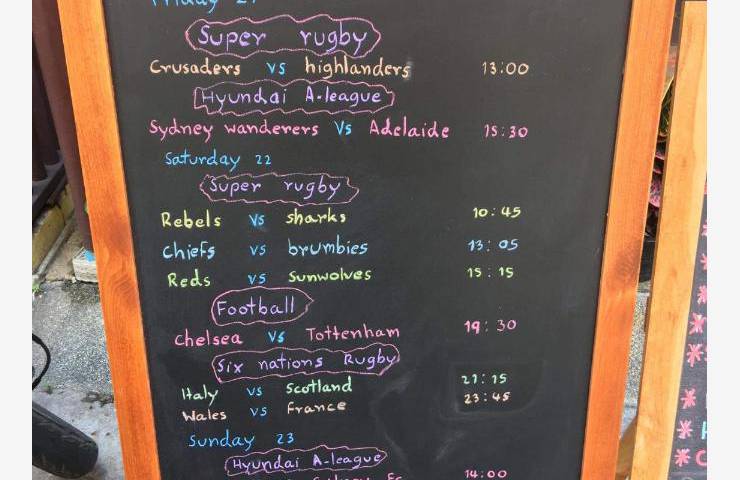 Friday 21
Super rugby
Crusaders vs highlanders 13:00
Hyundai A-league
Sydney wanderers Vs Adelaide 15:30
Saturday 22
Super rugby
Rebels vs sharks 10:45
Chiefs vs brumbies 13:05
Reds vs Sunwolves 15:15
Football
Chelsea vs Tottenham 19:30
Six nations Rugby
Italy vs Scotland 21:15
Wales vs France 23:45
Sunday 23
Hyundai A-league
14:00